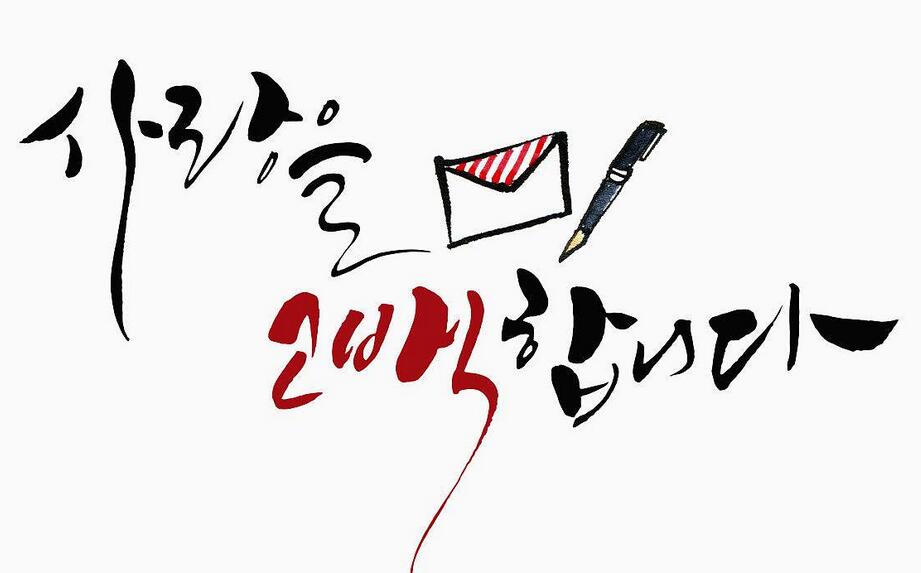 사랑을
고백합니다